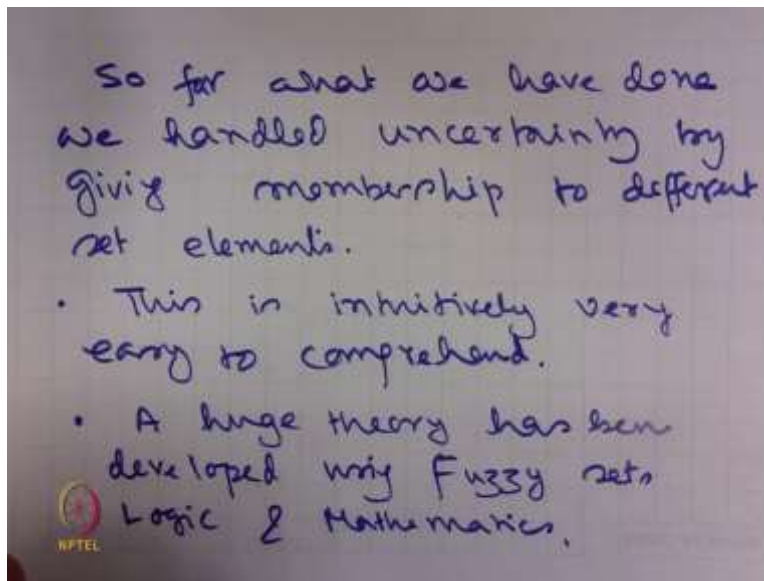 So far what we have done
we handled uncertainty by
giving membership to different
set elements.
• This is intuitively very
easy to comprehend.
• A huge theory has been
developed using Fuzzy sets
Logic & Mathematics.
NPTEL